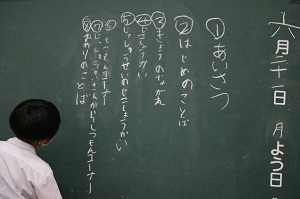 六月二十一日 月よう日
①あいさつ
②はじめのことば
③きょうのながれ
④じこしょうかい
⑤じっしゅうせいのじこしょうかい
⑥しつもんコーナー
⑦じっしゅうせいさんからしつもんコーナー
⑧おわりのことば